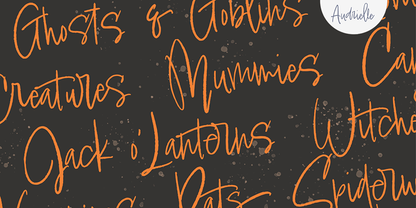 Ghosts & Goblins
Audrielle
Creatures
Mummies
Ca
Jack o'Lanterns
Witche
Bats
Spiderw